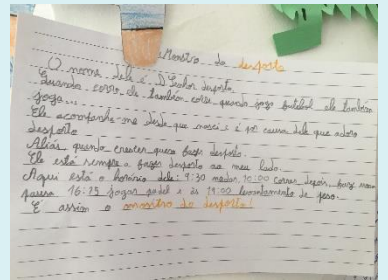 Monstro do desporto
O nome dele é D Senhor desporto.
Quando corro ele também corre, quando jogo futebol ele também
joga...
Ele acompanha-me desde que nasci e é por causa dele que adoro
desporto.
Aliás quando crescer quero fazer desporto.
Ele está sempre a fazer desporto ao meu lado.
Aqui está o horário dele: 9:30 nadar, 10:00 correr, depois faz uma
pausa 16:25 jogar padel e às 19:00 levantamento de peso.
E assim o monstro do desporto!